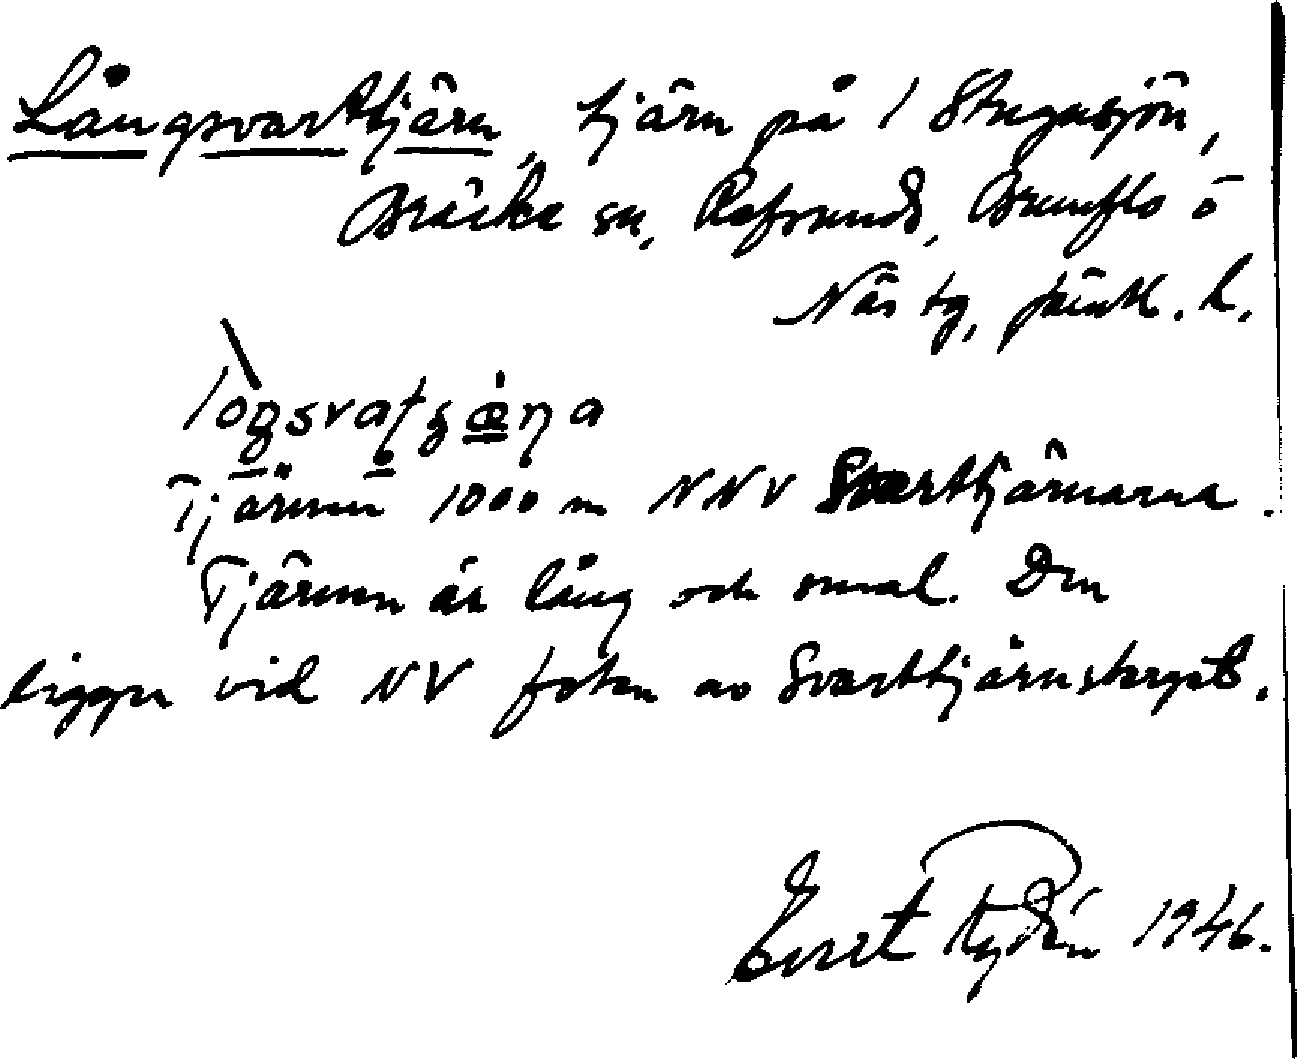 Långsvarttjärn, tjärn på 1 Stugusjön,
Bräcke sn, Refsunds, Brunflo o
Näs tg, Jämtl. l.
Tjärnen 1000 m NNV Svarttjärnarna.
Tjärnen är lång och smal. Den
ligger vid NV foten av Svarttjärnsberget.
Evert Rydén 1946.